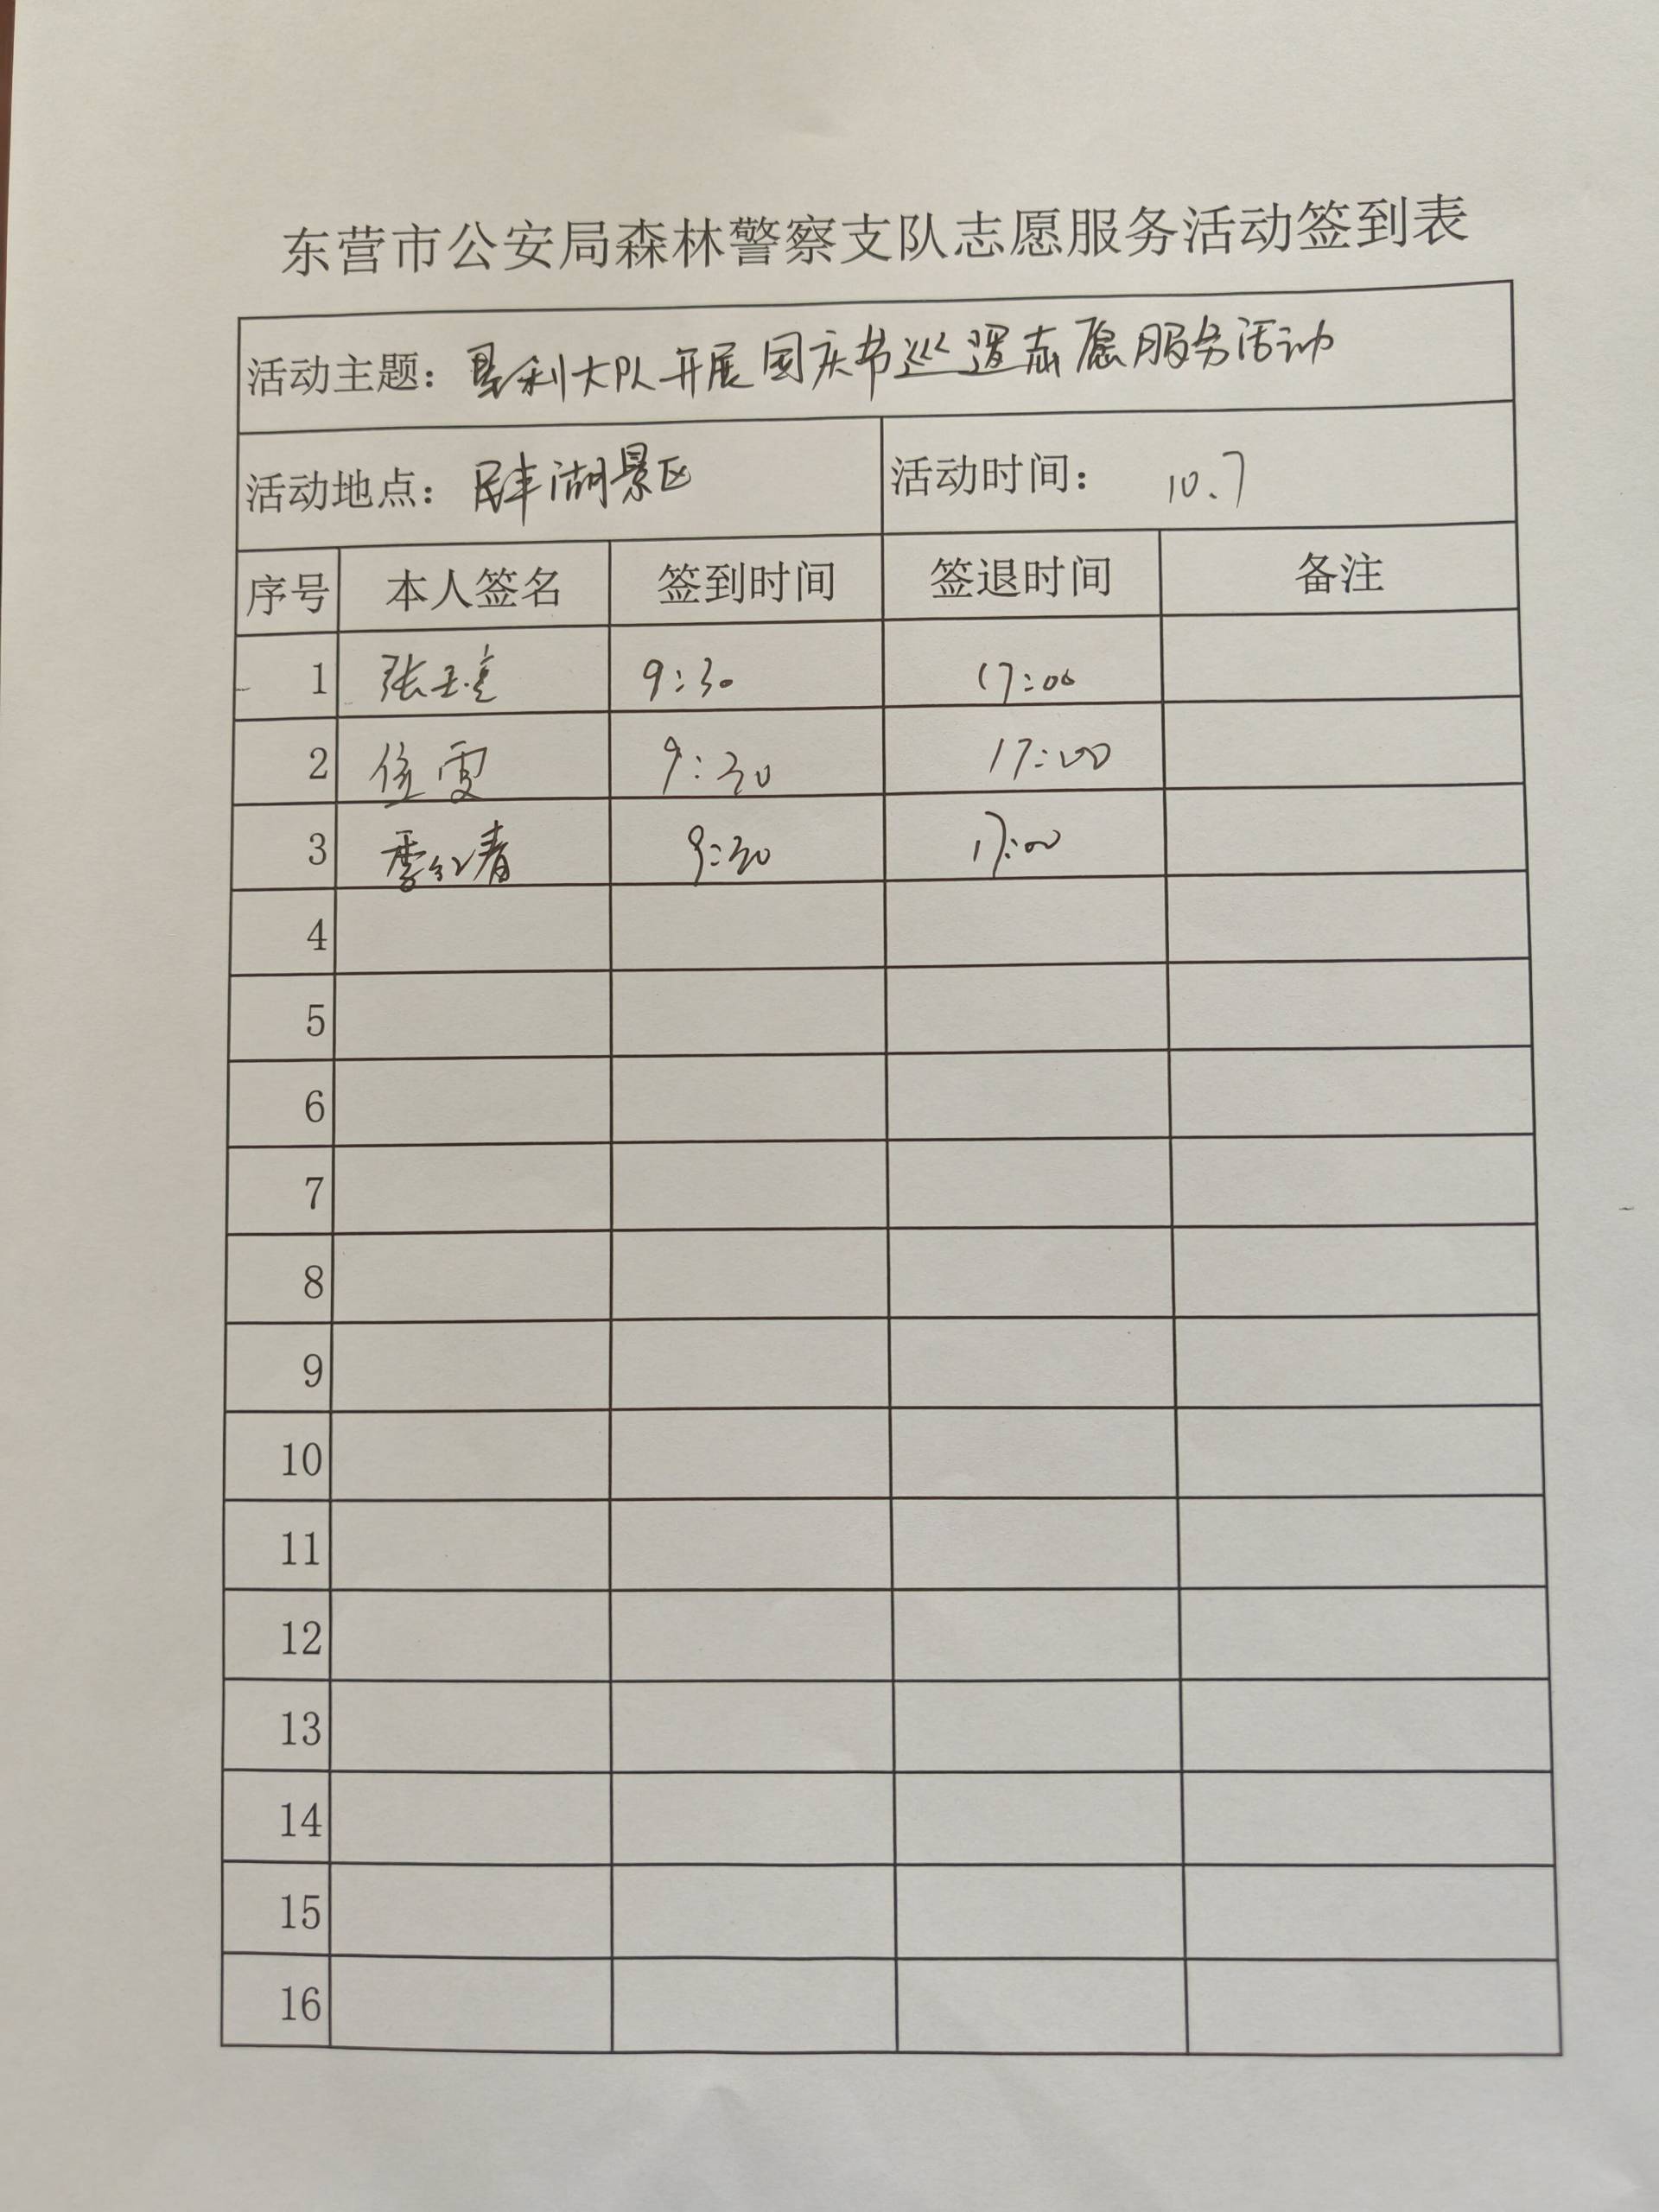 东营市公安局森林警察支队志愿服务活动签到表
活动主题：垦利大队开展国庆节巡逻志愿服务活动
活动地点：民丰湖景区 活动时间： 10.7
序号 本人签名 签到时间 签退时间 备注
1 张 9:30 17:00
2 位雪 9:30 17:00
3 季红春 9:30 17:00
4
5
6
7
8
9
10
11
12
13
14
15
16